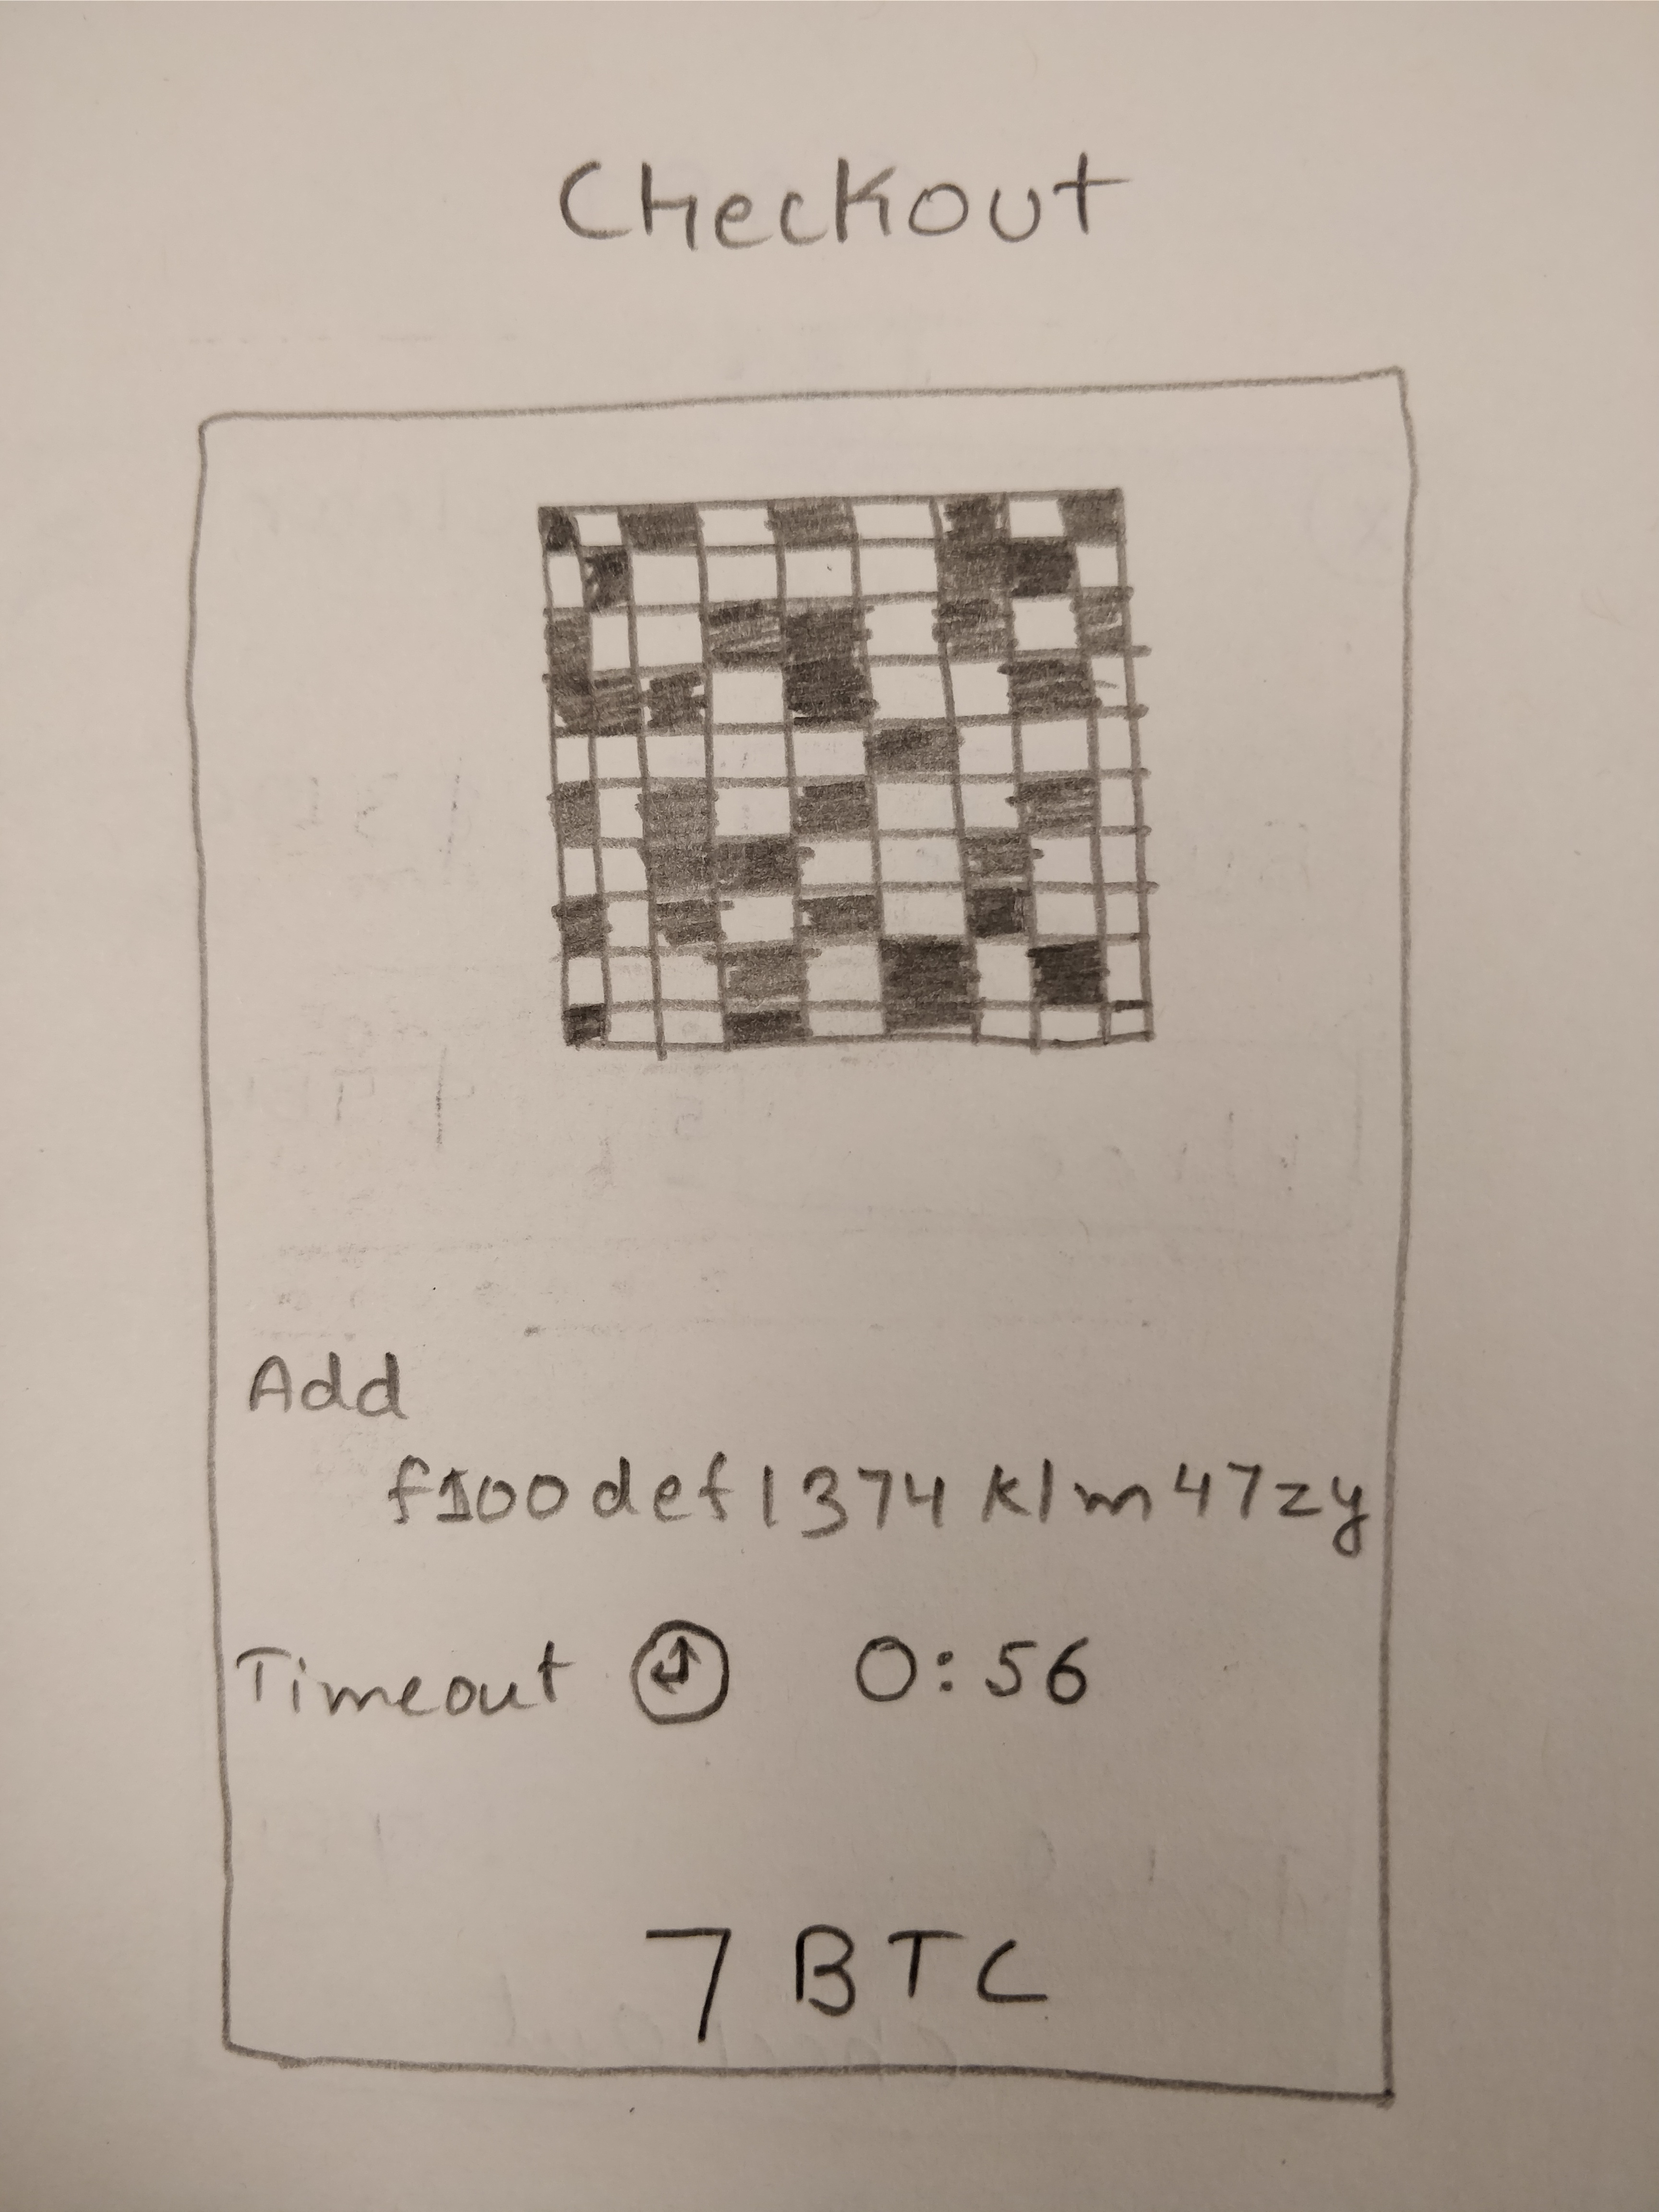 Checkout
Add
f100def1374klm47zy
Timeout 0:56
7 BTC